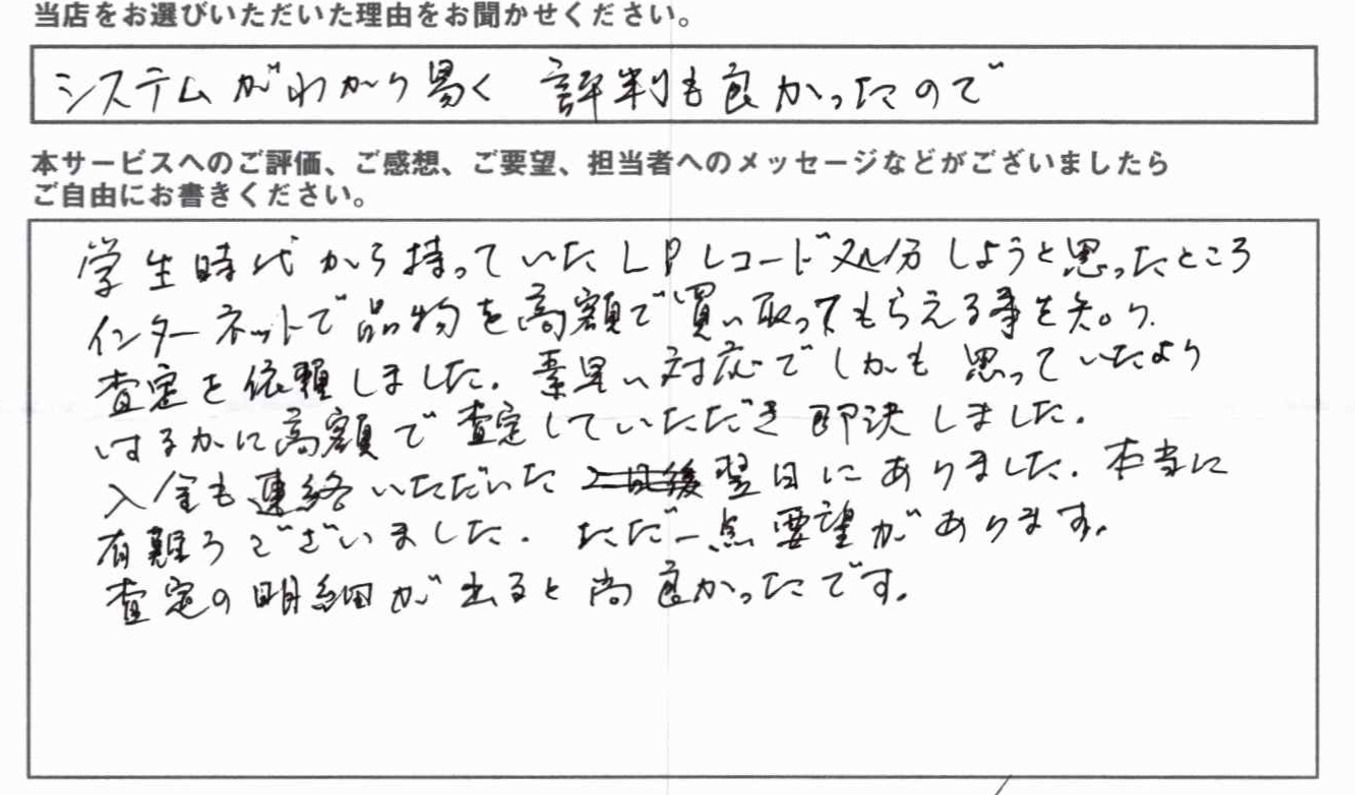 当店をお選びいただいた理由をお聞かせください。
システムがわかり易く 評判も良かったので
本サービスへのご評価、ご感想、ご要望、担当者へのメッセージなどがございましたら
ご自由にお書きください。
学生時代から持っていたLPレコード処分しようと思ったところ
インターネットで品物を高額で買い取ってもらえる事を知り
査定を依頼しました。素早い対応でしかも思っていたより
はるかに高額で査定していただき即決しました。
入金も連絡いただいた翌日にありました。本当に
有難うございました。ただ一点要望があります。
査定の明細が出ると尚良かったです。